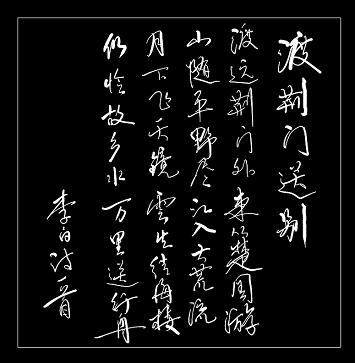 渡荆门送别
渡远荆门外来从楚国游
山随平野尽江入大荒流
月下飞天镜雲生结海楼
仍怜故乡水万里送行舟
李白诗一首